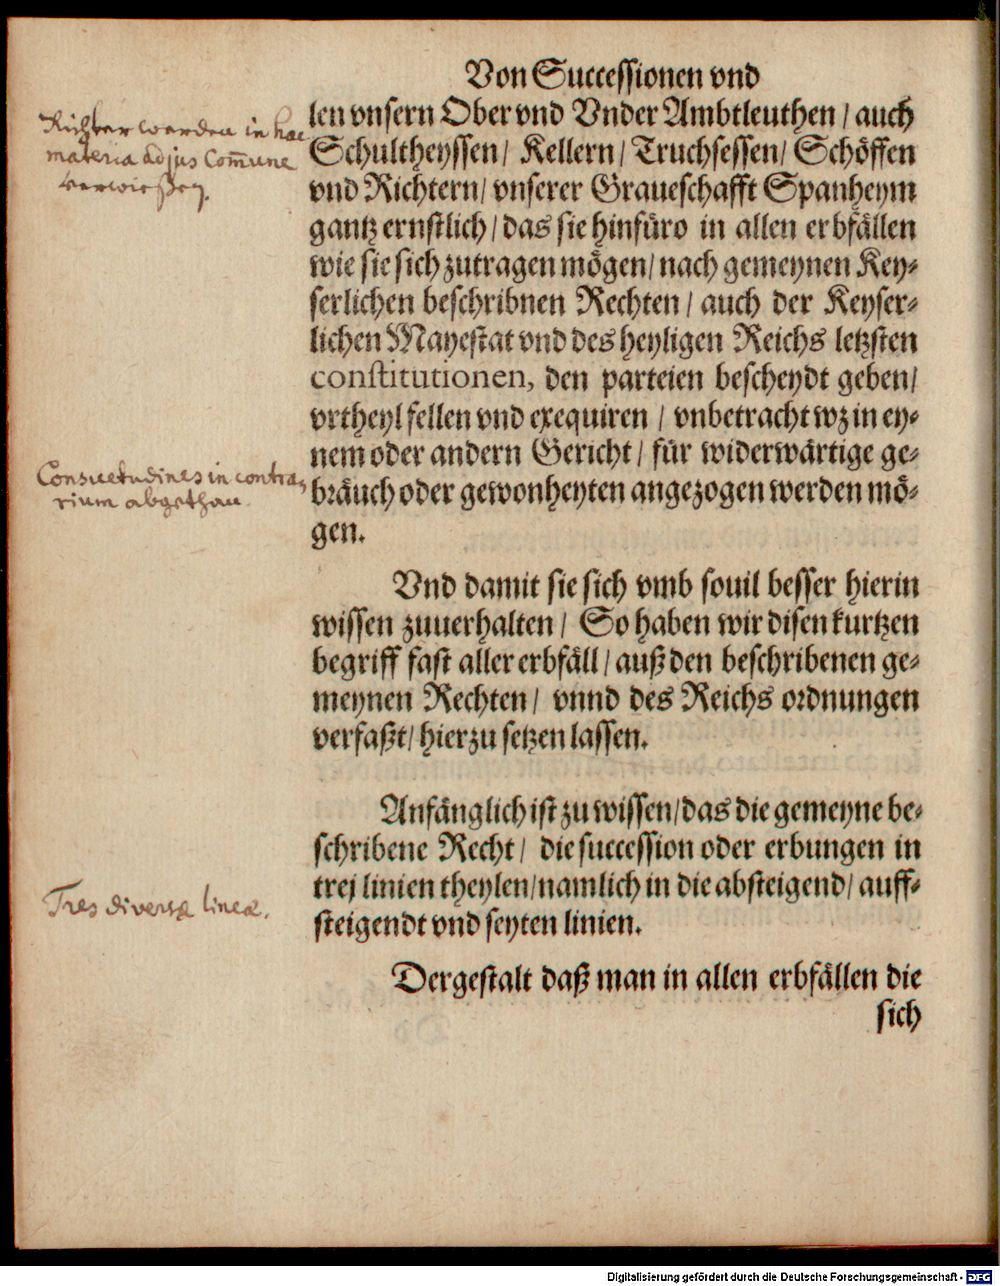 Von Successionen vnd
len vnsern Ober vnd Vnder Ambtleuthen / auch
Schultheyssen / Kellern / Truchsessen / Schöffen
vnd Richtern / vnserer Graueschafft Spanheym
gantz ernstlich / das sie hinfüro in allen erbfällen
wie sie sich zutragen mögen / nach gemeynen Key⸗
serlichen beschribnen Rechten / auch der Keyser⸗
lichen Mayestat vnd des heyligen Reichs letzsten
constitutionen, den parteien bescheydt geben /
vrtheyl fellen vnd exequiren / vnbetracht wz in ey⸗
nem oder andern Gericht / für widerwärtige ge⸗
bräuch oder gewonheyten angezogen werden mö⸗
gen.
Vnd damit sie sich vmb souil besser hierin
wissen zuuerhalten / So haben wir disen kurtzen
begriff fast aller erbfäll / auß den beschribenen ge⸗
meynen Rechten / vnnd des Reichs ordnungen
verfaßt / hierzu setzen lassen.
Anfänglich ist zu wissen / das die gemeyne be⸗
schribene Recht / die succession oder erbungen in
trej linien theylen / namlich in die absteigend / auff⸗
steigendt vnd seyten linien.
Dergestalt daß man in allen erbfällen die
sich
Richter werden in hac
materia ad jus Com̃une
verwießen.
Consuetudines in contra⸗
rium abgethan.
Tres diversæ lineæ.
Digitalisierung gefördert durch die Deutsche Forschungsgemeinschaft - DFG